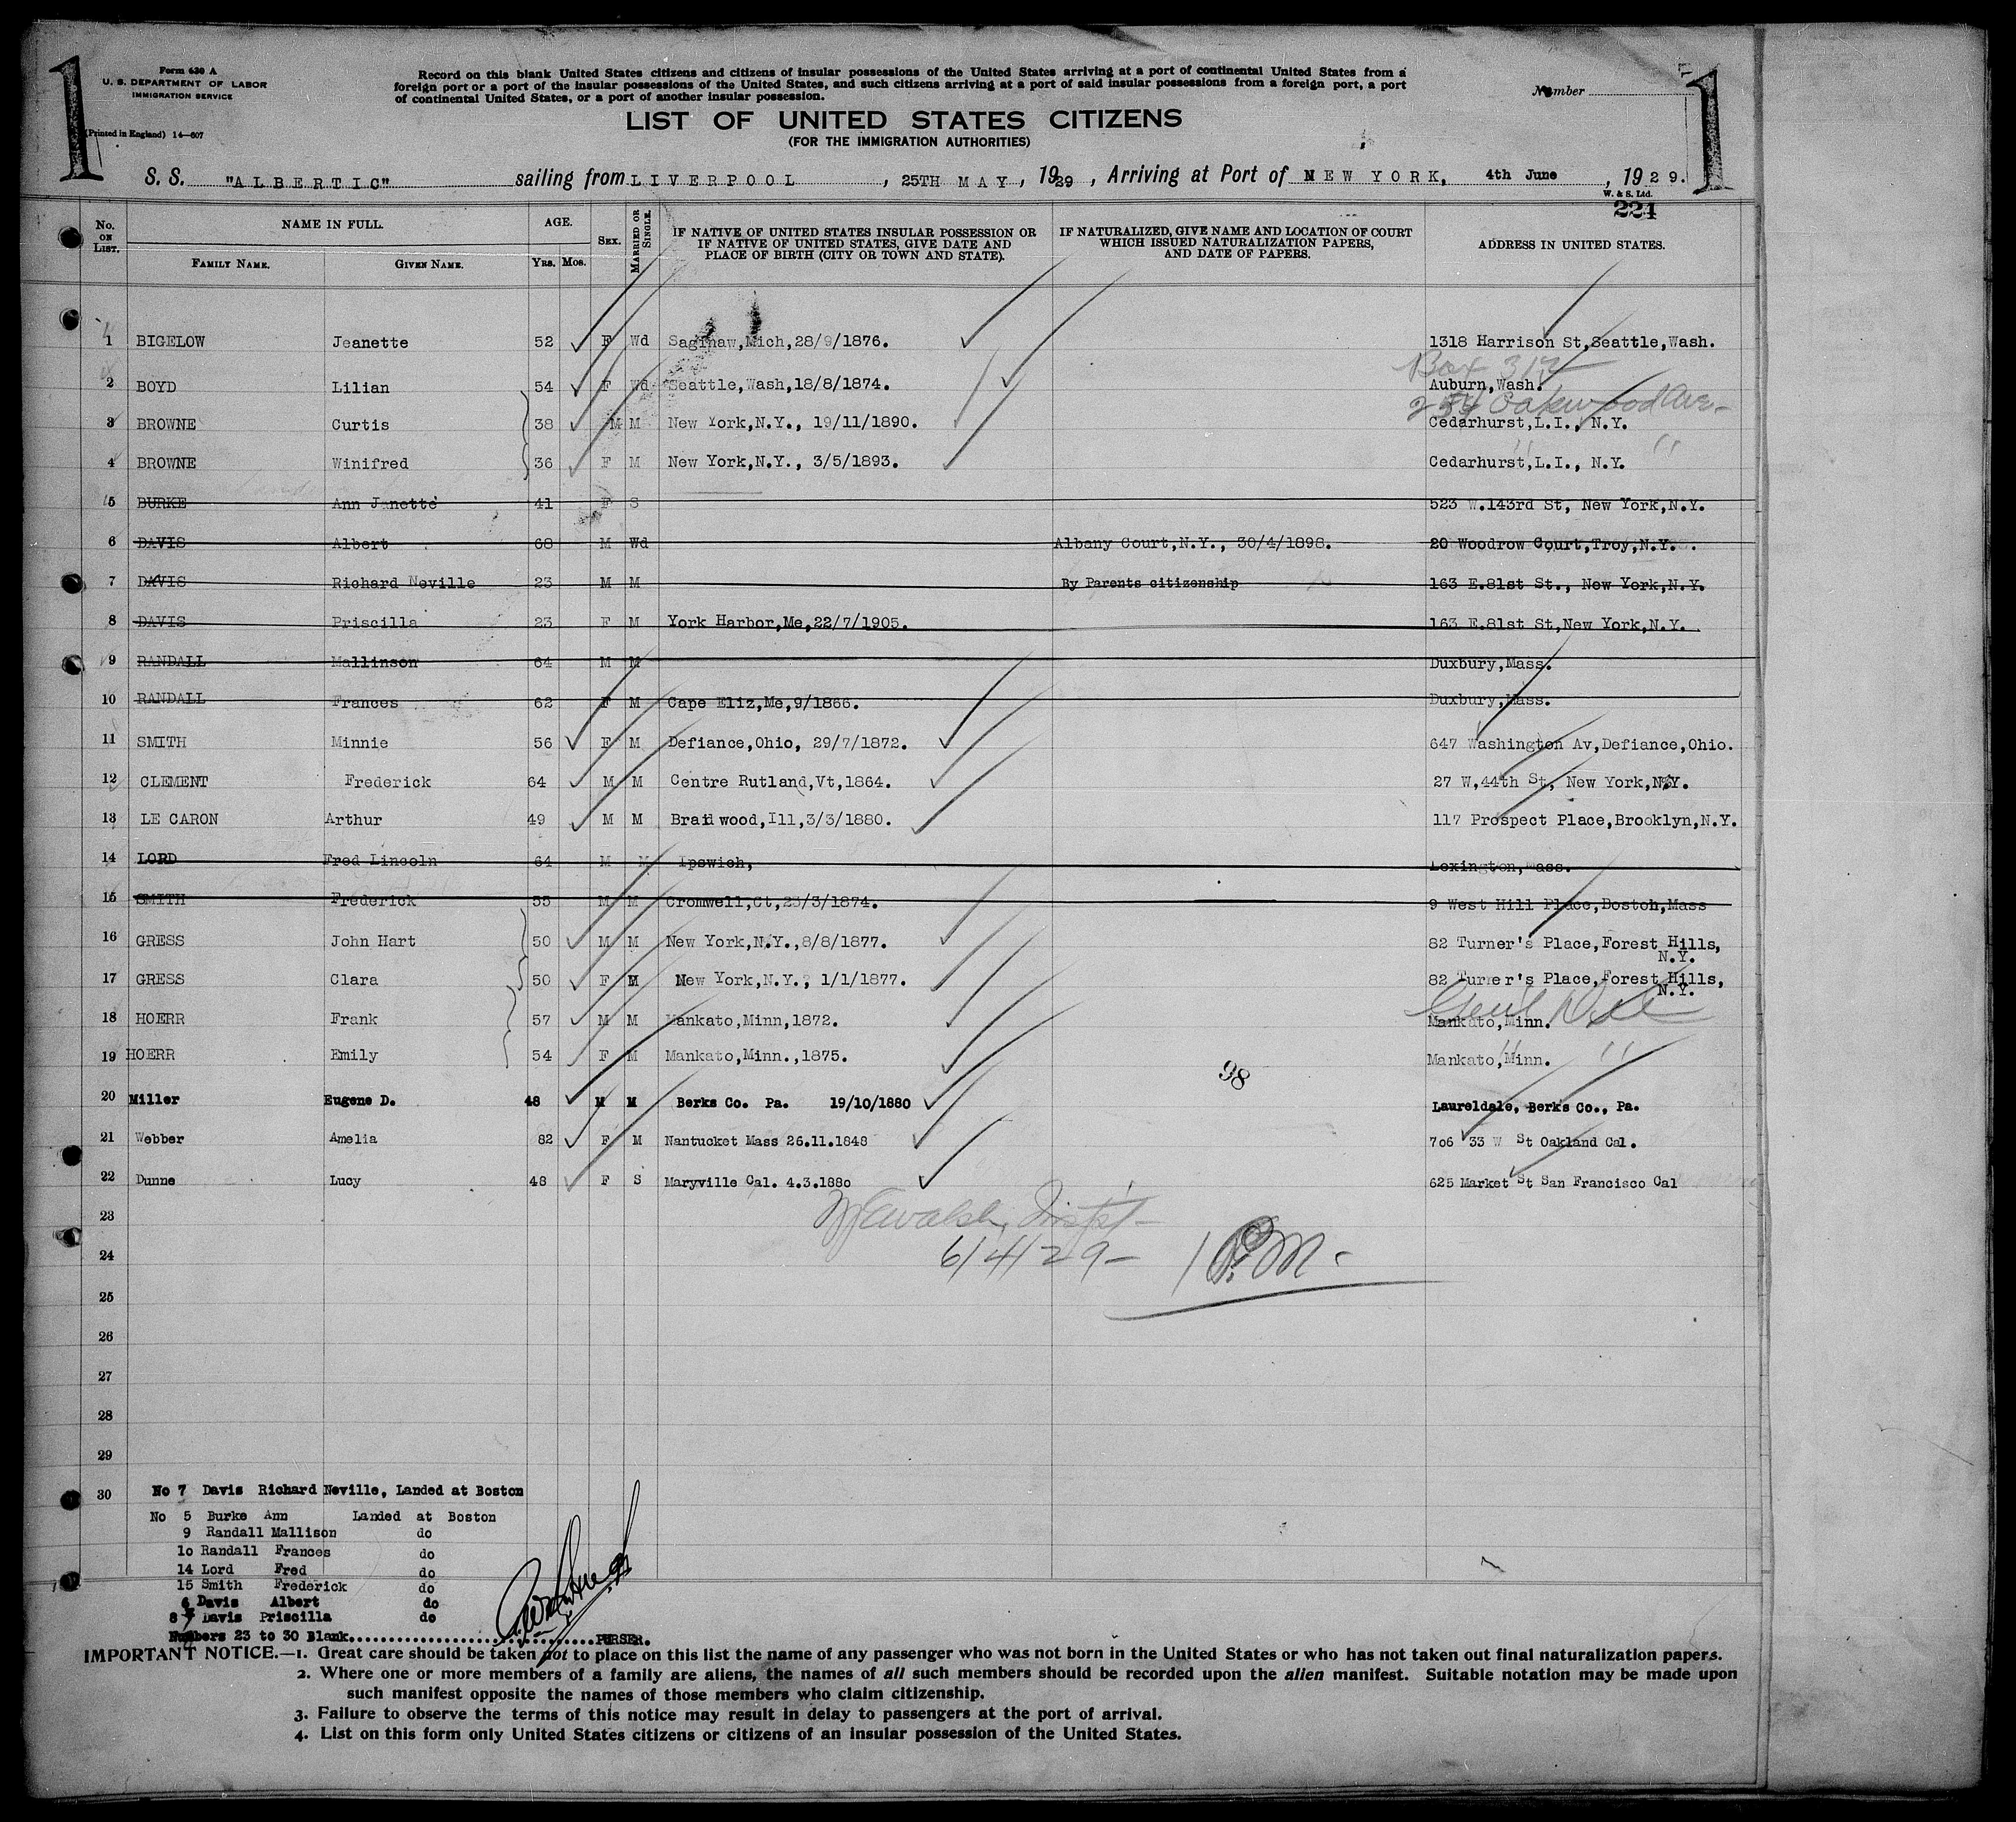 1
1
Form 630 A
U. S. DEPARTMENT OF LABOR
IMMIGRATION SERVICE
(Printed in England) 14—607
Record on this blank United States citizens and citizens of insular possessions of the United States arriving at a port of continental United States from a
foreign port or a port of the insular possessions of the United States, and such citizens arriving at a port of said insular possessions from a foreign port, a port
of continental United States, or a port of another insular possession.
Number
LIST OF UNITED STATES CITIZENS
(FOR THE IMMIGRATION AUTHORITIES)
S. S. "ALBERTIC" sailing from LIVERPOOL, 25TH MAY, 1929, Arriving at Port of NEW YORK, 4th June, 1929.
W. & S. Ltd.
224
No. ON LIST. NAME IN FULL. AGE. SEX. MARRIED OR SINGLE. IF NATIVE OF UNITED STATES INSULAR POSSESSION OR IF NATIVE OF UNITED STATES, GIVE DATE AND PLACE OF BIRTH (CITY OR TOWN AND STATE). IF NATURALIZED, GIVE NAME AND LOCATION OF COURT WHICH ISSUED NATURALIZATION PAPERS, AND DATE OF PAPERS. ADDRESS IN UNITED STATES.
FAMILY NAME. GIVEN NAME. YRS. MOS.
1 BIGELOW Jeanette 52 F Wd Saginaw,Mich,28/9/1876. 1318 Harrison St,Seattle,Wash.
Box 312
2 BOYD Lilian 54 F Wd Seattle,Wash,18/8/1874. Auburn,Wash.
Oakwood Ave-
3 BROWNE Curtis 38 M M New York,N.Y., 19/11/1890. Cedarhurst,L.I., N.Y.
4 BROWNE Winifred 36 F M New York,N.Y., 3/5/1893. Cedarhurst,L.I., N.Y.
5 BURKE Ann Janette 41 F S 523 W.143rd St, New York,N.Y.
6 DAVIS Albert 68 M Wd Albany Court,N.Y., 30/4/1898. 20 Woodrow Court,Troy,N.Y.
7 DAVIS Richard Neville 23 M M By Parents citizenship 163 E.81st St., New York,N.Y.
8 DAVIS Priscilla 23 F M York Harbor,Me,22/7/1905. 163 E.81st St,New York,N.Y.
9 RANDALL Mallinson 64 M M Duxbury,Mass.
10 RANDALL Frances 62 F M Cape Eliz,Me,9/1866. Duxbury,Mass.
11 SMITH Minnie 56 F M Defiance,Ohio, 29/7/1872. 647 Washington Av,Defiance,Ohio.
12 CLEMENT Frederick 64 M M Centre Rutland,Vt,1864. 27 W,44th St, New York,N.Y.
13 LE CARON Arthur 49 M M Braidwood,Ill,3/3/1880. 117 Prospect Place,Brooklyn,N.Y.
14 LORD Fred Lincoln 64 M M Ipswich, Lexington,Mass.
15 SMITH Frederick 55 M M Cromwell,Ct,23/3/1874. 9 West Hill Place,Boston,Mass
16 GRESS John Hart 50 M M New York,N.Y.,8/8/1877. 82 Turner's Place,Forest Hills,
N.Y.
17 GRESS Clara 50 F M New York,N.Y., 1/1/1877. 82 Turner's Place,Forest Hills,
N.Y.
Gen'l Del
18 HOERR Frank 57 M M Mankato,Minn,1872. Mankato,Minn.
19 HOERR Emily 54 F M Mankato,Minn.,1875. Mankato,Minn.
98
20 Miller Eugene D. 48 M M Berks Co. Pa. 19/10/1880 Laureldale, Berks Co., Pa.
21 Webber Amelia 82 F M Nantucket Mass 26.11.1848 706 33 W St Oakland Cal.
22 Dunne Lucy 48 F S Maryville Cal. 4.3.1880 625 Market St San Francisco Cal
23
24 6/4/29- 1 P.M.
25
26
27
28
29
30 No 7 Davis Richard Neville, Landed at Boston
No 5 Burke Ann Landed at Boston
9 Randall Mallison do
10 Randall Frances do
14 Lord Fred do
15 Smith Frederick do
6 Davis Albert do
8 Davis Priscilla do
Numbers 23 to 30 Blank. PURSER.
IMPORTANT NOTICE.—1. Great care should be taken not to place on this list the name of any passenger who was not born in the United States or who has not taken out final naturalization papers.
2. Where one or more members of a family are aliens, the names of all such members should be recorded upon the alien manifest. Suitable notation may be made upon
such manifest opposite the names of those members who claim citizenship.
3. Failure to observe the terms of this notice may result in delay to passengers at the port of arrival.
4. List on this form only United States citizens or citizens of an insular possession of the United States.